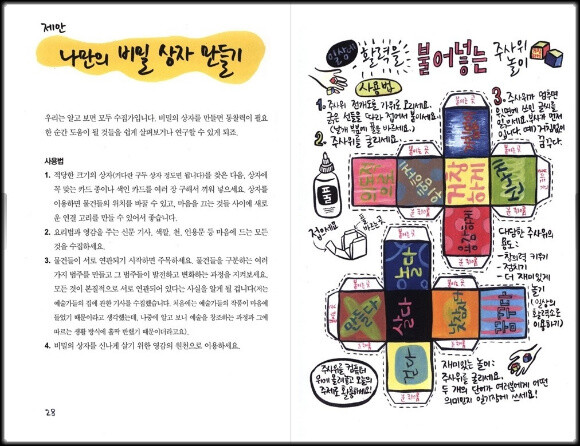 제안
나만의 비밀 상자 만들기
우리는 알고 보면 모두 수집가입니다. 비밀의 상자를 만들면 통찰력이 필요
한 순간 도움이 될 것들을 쉽게 살펴보거나 연구할 수 있게 되죠.
사용법
1. 적당한 크기의 상자(커다란 구두 상자 정도면 됩니다)를 찾은 다음, 상자에
꼭 맞는 카드 종이나 색인 카드를 여러 장 구해서 끼워 넣으세요. 상자를
이용하면 물건들의 위치를 바꿀 수 있고, 마음을 끄는 것들 사이에 새로
운 연결 고리를 만들 수 있어서 좋습니다.
2. 요리법과 영감을 주는 신문 기사, 색깔, 천, 인용문 등 마음에 드는 모든
것을 수집하세요.
3. 물건들이 서로 연관되기 시작하면 주목하세요. 물건들을 구분하는 여러
가지 범주를 만들고 그 범주들이 발전하고 변화하는 과정을 지켜보세요.
모든 것이 본질적으로 서로 연관되어 있다는 사실을 알게 될 겁니다(저는
예술가들의 집에 관한 기사를 수집했습니다. 처음에는 예술가들의 작품이 마음에
들었기 때문이라고 생각했는데, 나중에 알고 보니 예술을 창조하는 과정과 그에
따르는 생활 방식에 흠뻑 반했기 때문이더라고요).
4. 비밀의 상자를 신나게 살기 위한 영감의 원천으로 이용하세요.
28
일상에 활력을 불어넣는 주사위 놀이
사용법
1. 주사위 전개도를 가위로 오리세요.
굵은 선들을 따라 접어서 붙이세요.
(날개 부분에 풀을 바르세요.)
2. 주사위를 굴리세요.
3. 주사위가 멈추면
윗면에 쓰인 글씨를
거장
하게
풀
접으세요
풀
바르는 곳
다당한 주사위의
용도:
-창의력 키우기
-점치기
-더 재미있게
놀기
(일상의
활력소로
이용하기)
놀다
만들다
살다
낮잠자다
걷다
주사위를 컴퓨터
위에 올려놓고 오늘의
주제로 활용하세요!
재미있는 놀이:
주사위를 굴리세요.
두 개의 단어가 여러분에게 어떤
의미인지 일기장에 쓰세요!